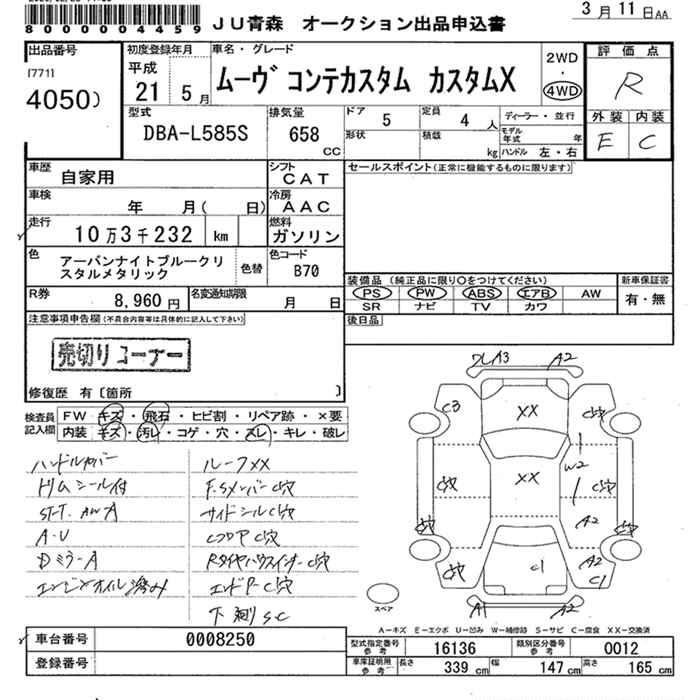 3月11日AA
8000004459
JU青森 オークション出品申込書
出品番号
[771]
4050)
初度登録年月
平成
21 5月
車名・グレード
ムーヴ コンテカスタム カスタムX
2WD
・
4WD
評価点
R
外装 内装
E C
型式
DBA-L585S
排気量
658
CC
ドア 5
定員 4 人
形状
積載 kg
ディーラー・並行
モデル年式 年
ハンドル 左・右
車歴
自家用
シフト
CAT
セールスポイント(正常に機能するものに限ります)
車検
年 月( 日)
冷房
AAC
走行
10万3千232 km
燃料
ガソリン
色
アーバンナイトブルークリ
スタルメタリック
色替
色コード
B70
R券
8,960円
名変通知期限
月 日
装備品(純正品に限り○をつけてください)
PS PW ABS エアB AW
SR ナビ TV カワ
新車保証書
有・無
後日品
注意事項申告欄(不具合内容等は具体的に記入して下さい)
売切りコーナー
修復歴 有〔箇所 〕
検査員
記入欄
FW キズ・飛石・ヒビ割・リペア跡・×要
内装 キズ・汚レ・コゲ・穴・スレ・キレ・破レ
ハンドルカバー
ドリムシール付
ST-T. AW A
A-U
Dミラ-A
エンジンオイル滲み
ルーフXX
F.Sメンバー C穴
サイドシル C穴
CフロアC穴
RタイヤハウスインナーC穴
エンドP-C穴
下剥 S.C
A2
C3
XX
C穴
XX
W2
C穴
C穴
A2
C穴
C穴
C穴
C1
A2
C1
A1
A2
スペア
A-キズ E-エクボ U-凹み W-補修跡 S-サビ C-腐食 XX-交換済
車台番号 0008250
登録番号
型式指定番号
参考
16136
類別区分番号
参考
0012
車庫証明用
参考
長さ 339cm 幅 147cm 高さ 165cm